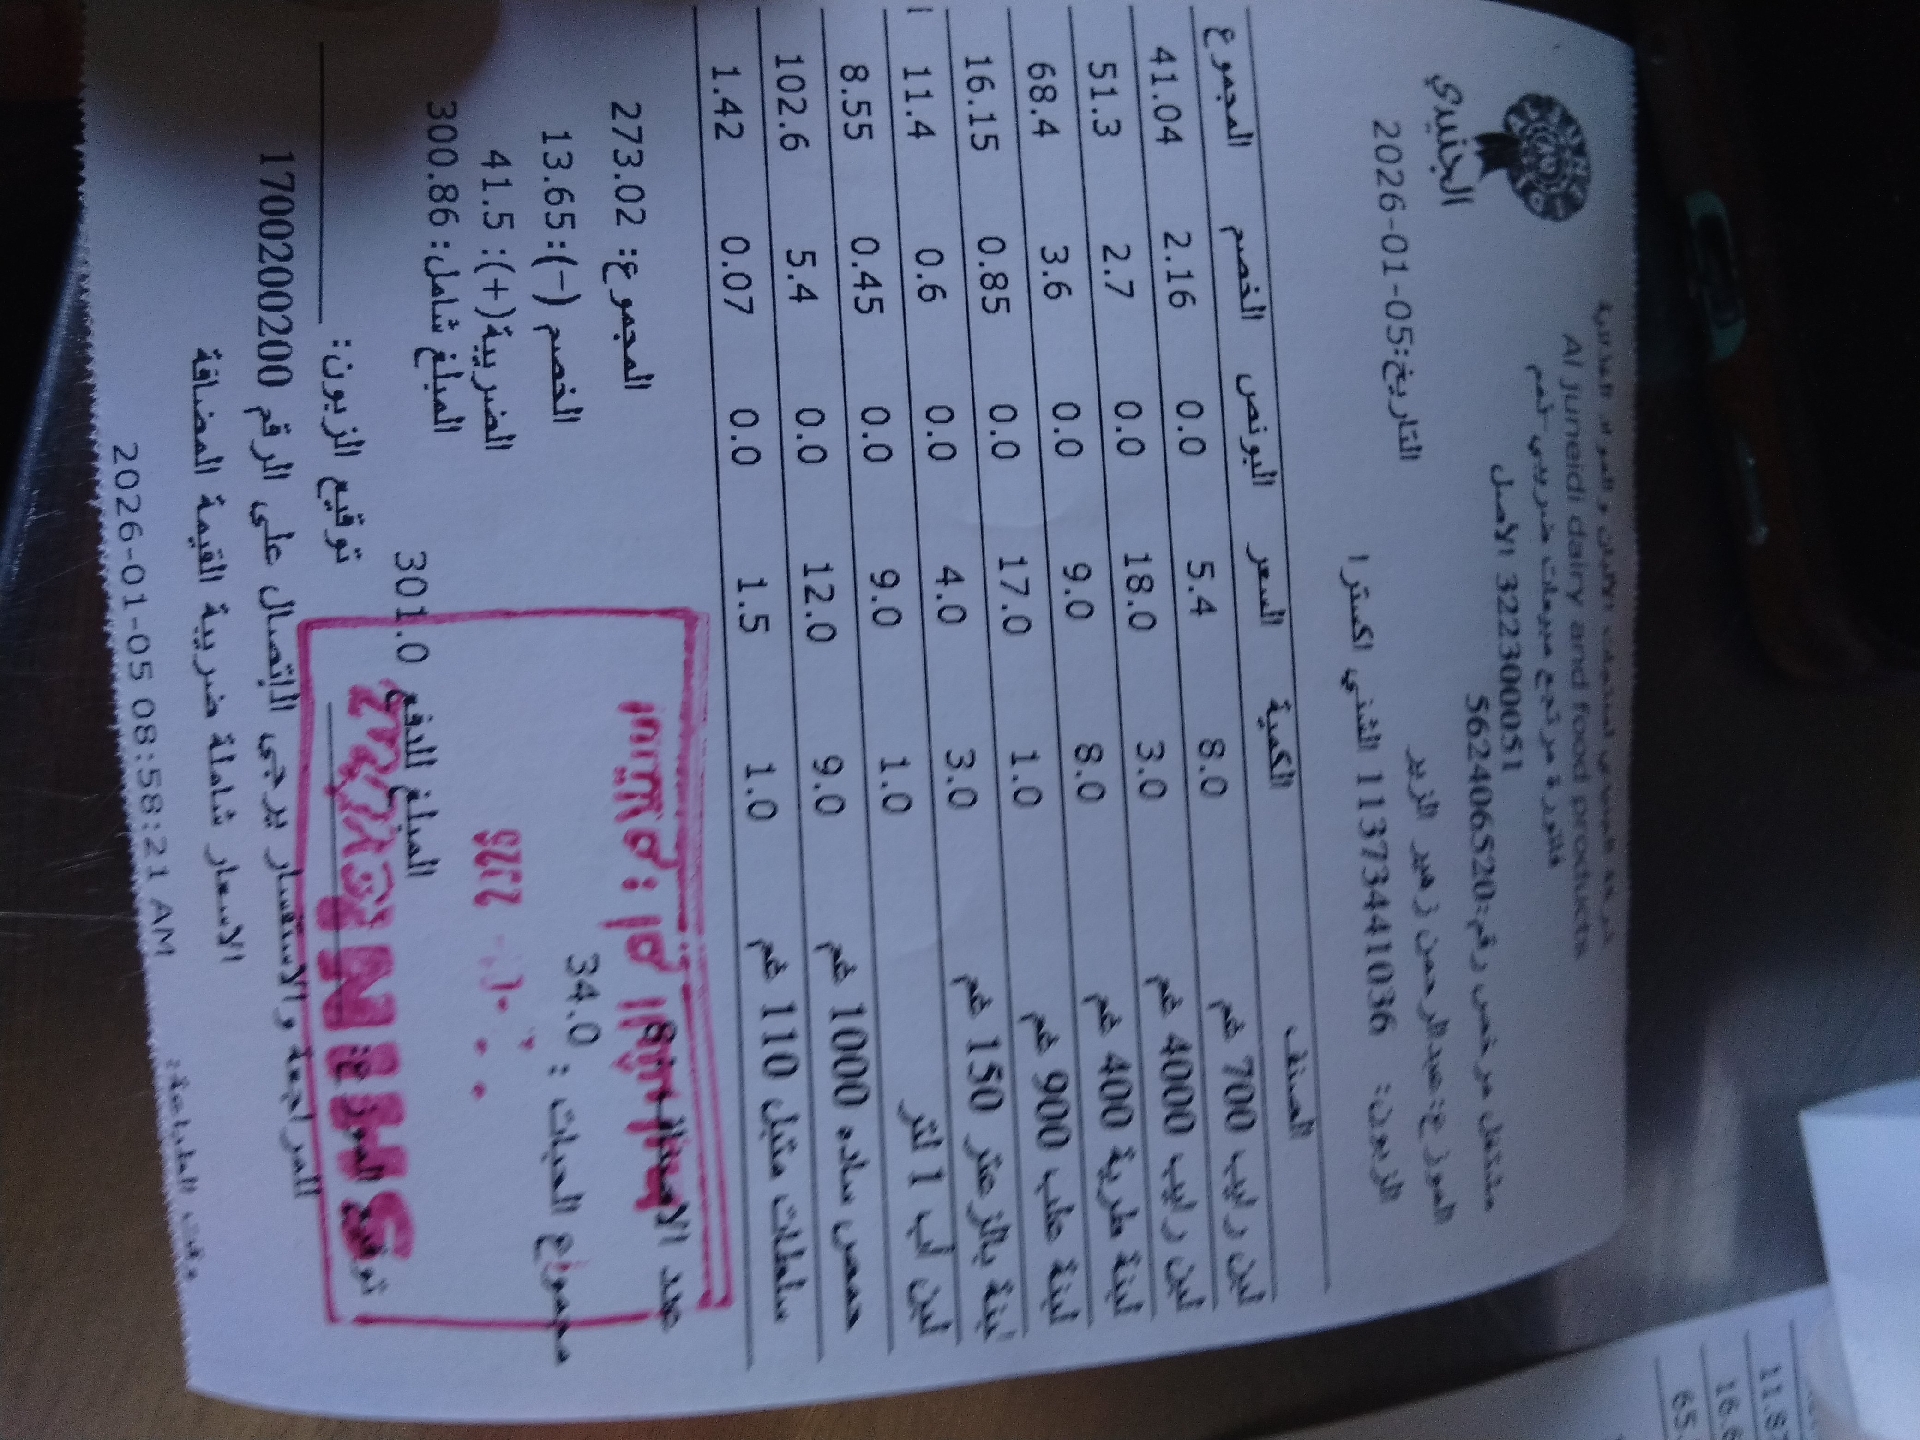 الجنيدي
شركة الجنيدي لمنتجات الالبان والمواد الغذائية
Al juneidi dairy and food products
فاتورة مرتجع مبيعات ضريبي-لحم
322300051 الاصل
مشتغل مرخص رقم:562406520
الموزع:عبدالرحمن زهير الزير
التاريخ:2026-01-05
الزبون: 11373441036 الشني اكسترا
الصنف الكمية السعر البونص الخصم المجموع
لبن رايب 700 غم 8.0 5.4 0.0 2.16 41.04
لبن رايب 4000 غم 3.0 18.0 0.0 2.7 51.3
لبنة طرية 400 غم 8.0 9.0 0.0 3.6 68.4
لبنة علب 900 غم 1.0 17.0 0.0 0.85 16.15
لبنة بالزعتر 150 غم 3.0 4.0 0.0 0.6 11.4
لبن اب 1 لتر 1.0 9.0 0.0 0.45 8.55
حمص ساده 1000 غم 9.0 12.0 0.0 5.4 102.6
سلطات متبل 110 غم 1.0 1.5 0.0 0.07 1.42
عدد الاصناف
المجموع: 273.02
مجموع الحبات : 34.0
الخصم (-):13.65
الضريبة(+): 41.5
المبلغ شامل: 300.86
المبلغ للدفع 301.0
توقيع الموزع:
توقيع الزبون:
المراجعة والاستفسار يرجى الاتصال على الرقم 1700200200
الاسعار شاملة ضريبة القيمة المضافة
وقت الطباعة:
2026-01-05 08:58:21 AM
SHINI
11.8
16.6
65.